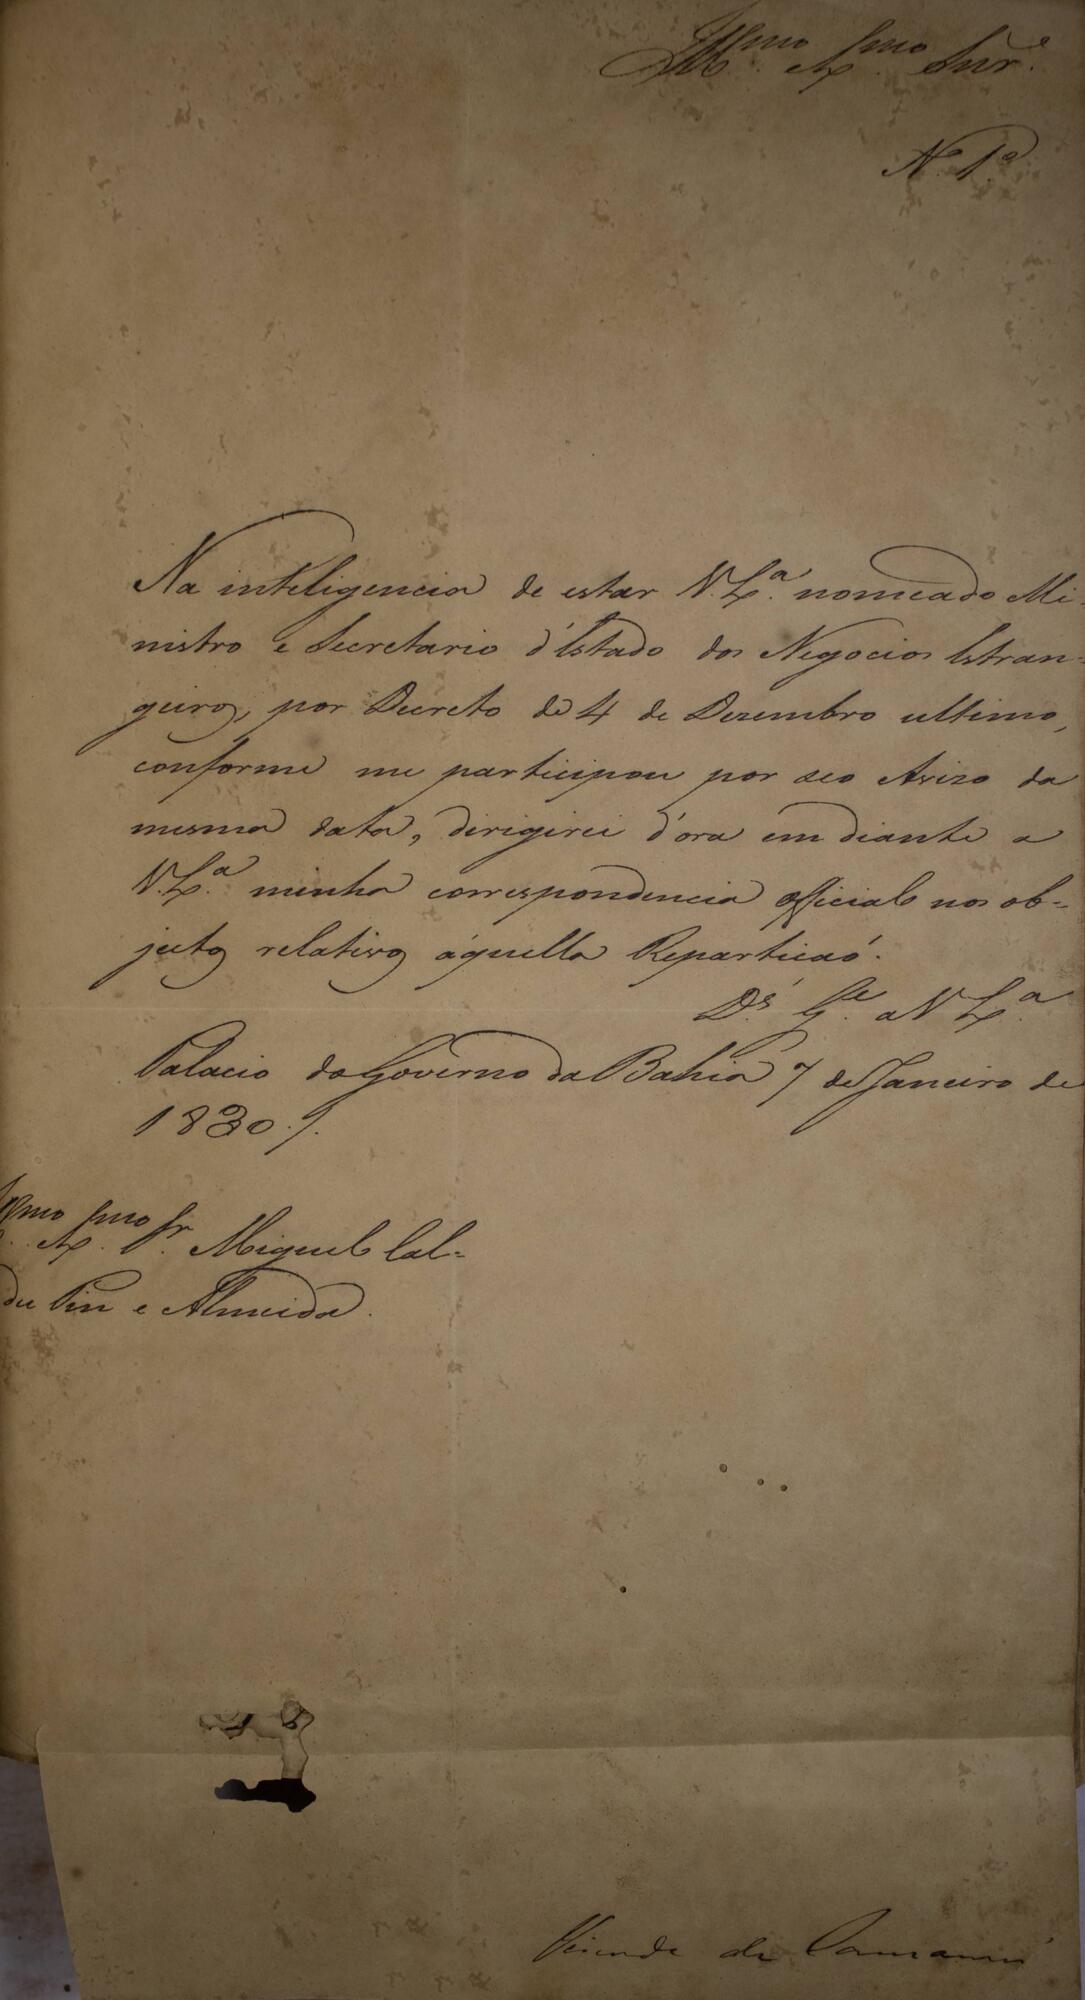 Illmo. Exmo. Snr.e
N. 1.o
Na inteligencia de estar V. Exa. nomeado Mi-
nistro e Secretario d'Estado dos Negocios Estran-
geiros, por Decreto de 4 de Dezembro ultimo,
conforme me participou por seo Avizo da
mesma data, dirigirei d'ora em diante a
V. Exa. minha correspondencia official nos ob-
jectos relativos áquella Repartição.
Ds. Ge. a V Exa.
Palacio do Governo da Bahia 7 de Janeiro de
1830./.
Illmo. Exmo. Sr. Miguel Cal-
du Pin e Almeida.
Visconde de Camamú